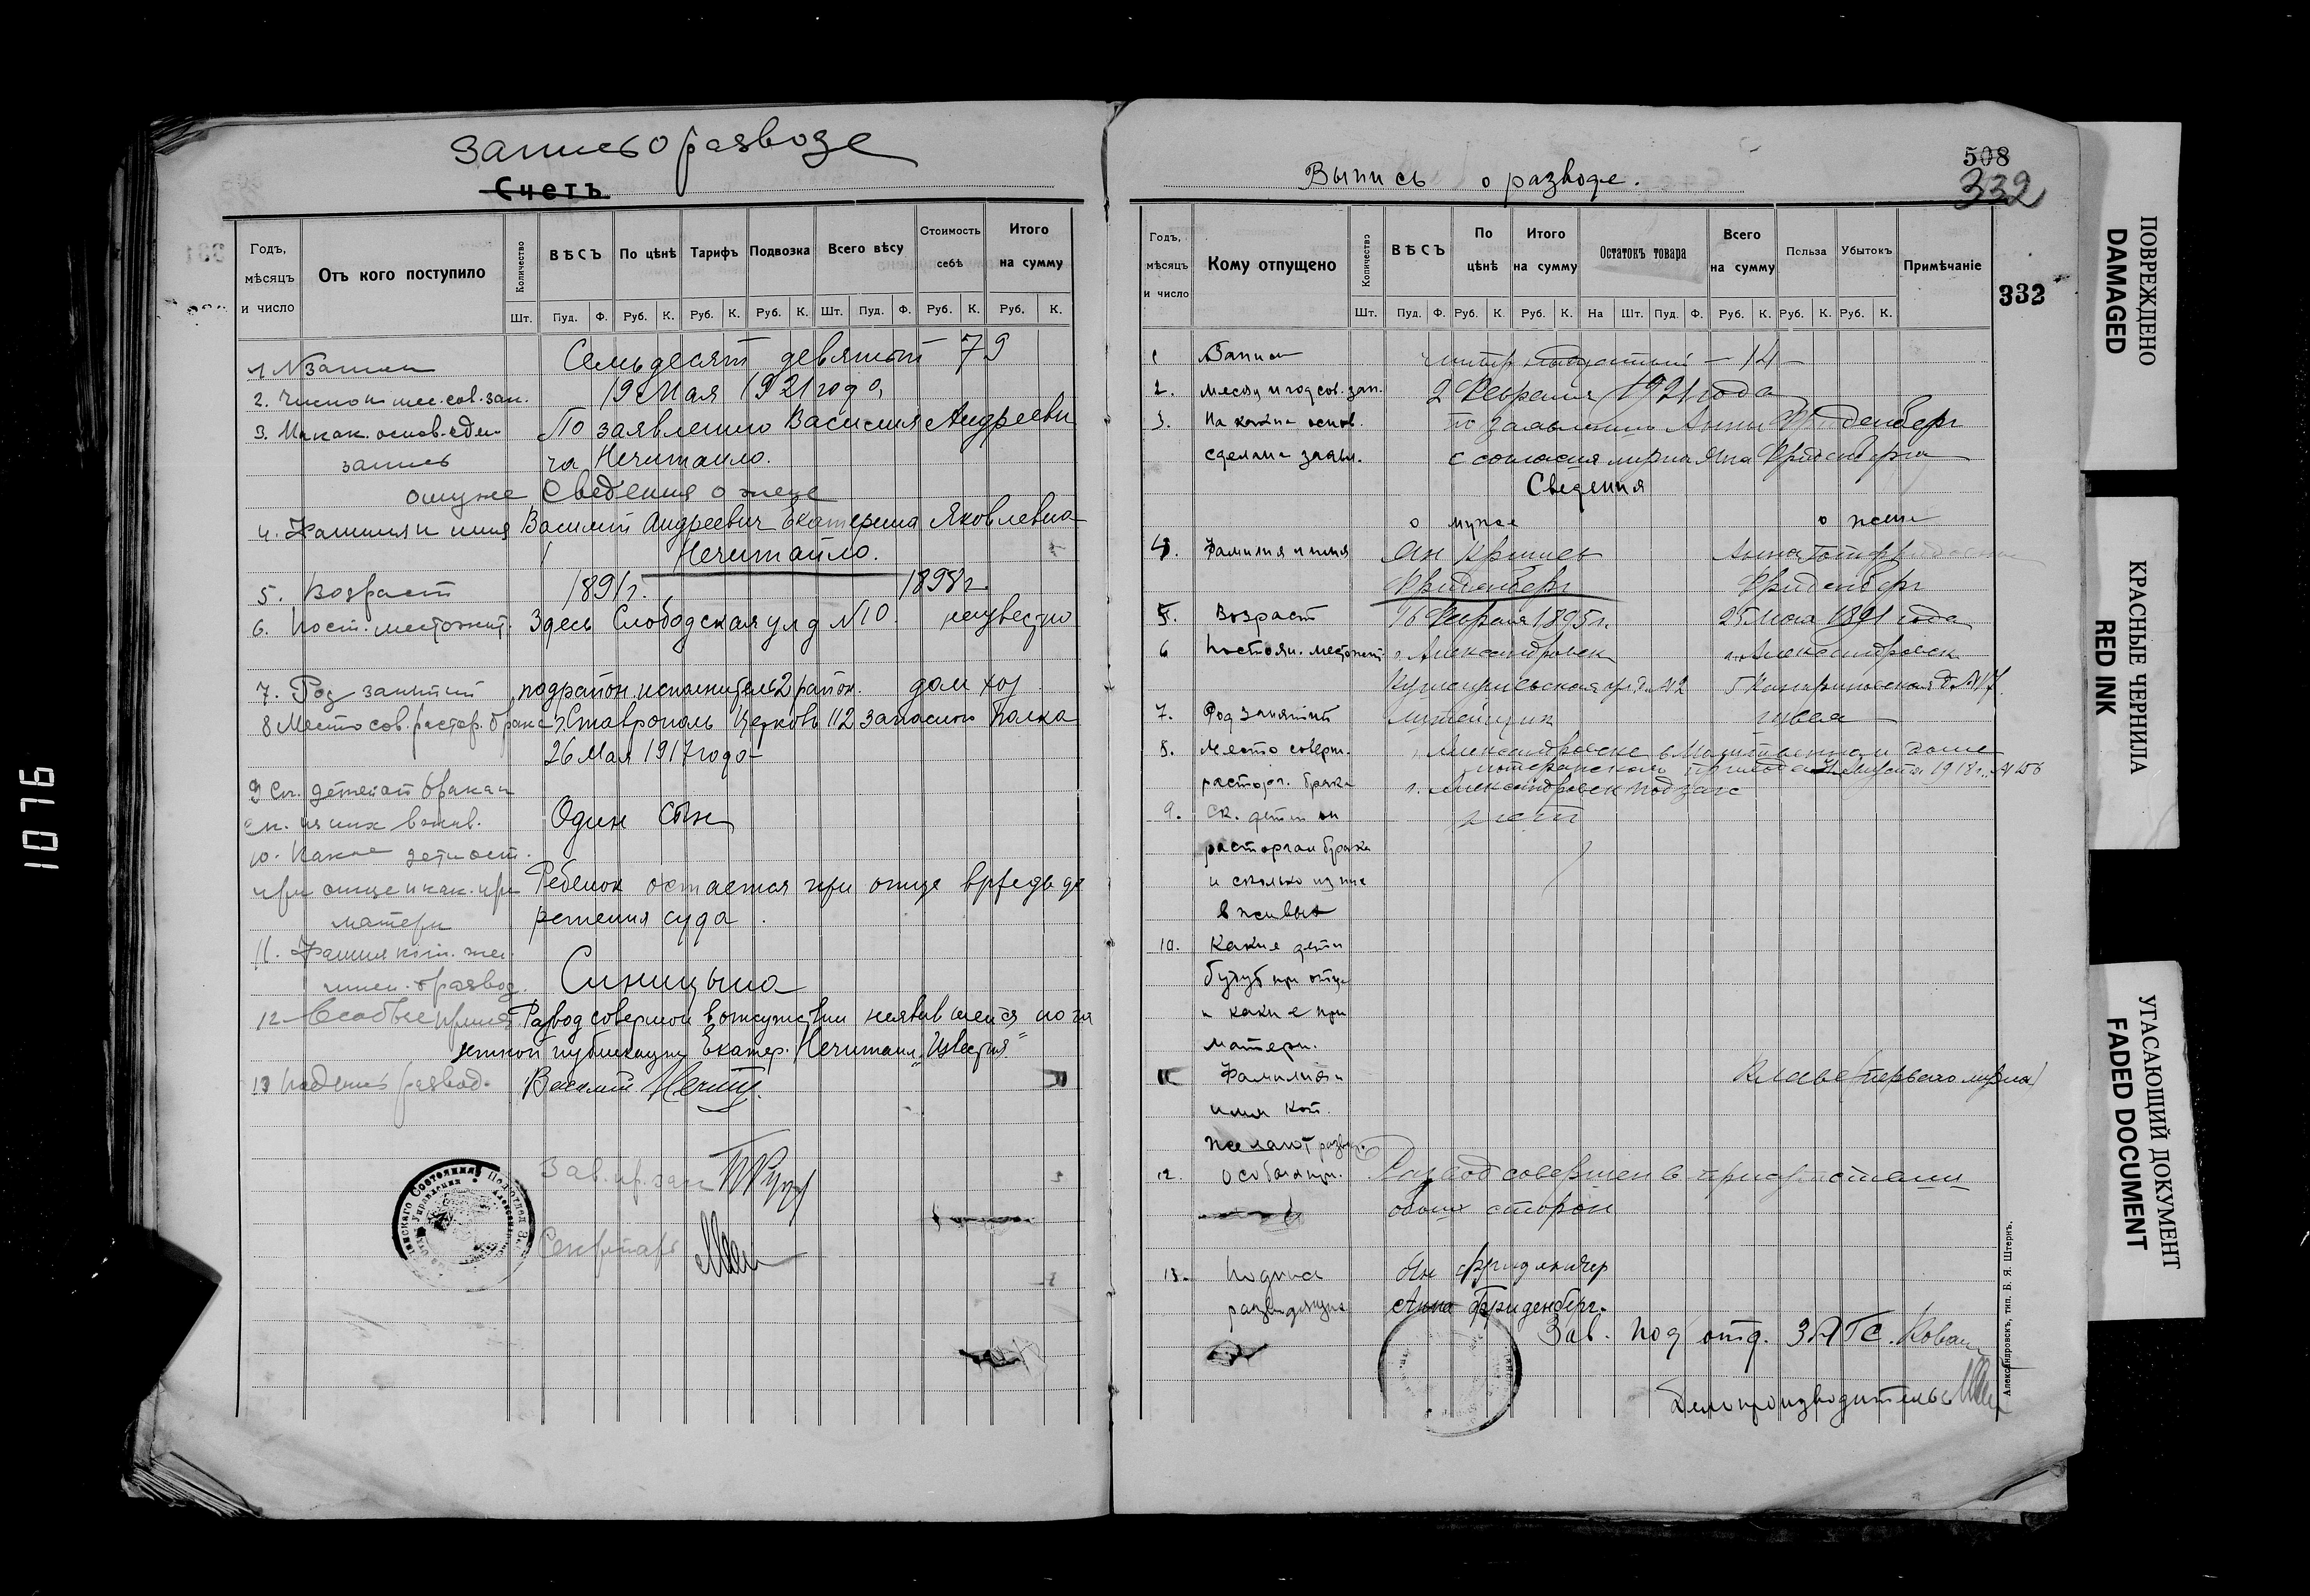 Запись о разводе
Счетъ
Годъ, мѣсяцъ и число
Отъ кого поступило
Количество
ВѢСЪ
По цѣнѣ
Тарифъ
Подвозка
Всего вѣсу
Стоимость себѣ
Итого на сумму
Шт. Пуд. Ф. Руб. К. Руб. К. Руб. К. Шт. Пуд. Ф. Руб. К. Руб. К.
1 N записи Семьдесят девятый 79
2. Число и мес. сов. зап. 19 Мая 1921 года
3. На как. основ. сдел. По заявлению Василия Андрееви
запись ча Нечитайло.
о муже Сведения о жене
4. Фамилия и имя Василий Андреевич Екатерина Яковлевна
Нечитайло.
5. Возраст 1891 г. 1898 г.
6. Пост. местожит. Здесь Слободская ул д N10. неизвестно
7. Род занятий подрайон. исполнитель 2 район. дом хоз
8 Место сов. растор. брака г. Ставрополь Церковь 112 запасного Полка
26 Мая 1917 года
9 Ск. детей от брака и
ск. из них в жив. Один сын
10. Какие дети ост.
при отце и как. при Ребенок остается при отце впредь до
матери решения суда.
11. Фамилия кот. жел.
имен. о развод. Синицына
12 Особые примеч Развод совершен в отсутствии неявившейся по га
зетной публикации Екатер. Нечитайл. „Известия"
13 Подпись развод. Василий Нечит
Зав. пр. зап
Секретарь
1076
Выпись о разводе.
508
332
Годъ, мѣсяцъ и число
Кому отпущено
Количество
ВѢСЪ
По цѣнѣ
Итого на сумму
Остатокъ товара
Всего на сумму
Польза
Убытокъ
Примѣчаніе
332
Шт. Пуд. Ф. Руб. К. Руб. К. На Шт. Пуд. Ф. Руб. К. Руб. К. Руб. К.
1 Записи — 14 —
2. месяц и год сов. зап. 2 Февраля 1921 года
3. На каком основ. по заявлению Анны Фриденберг
сделана заявл. с согласия мужа Яна Фриденберга
Сведения
о муже о жене
4. Фамилия и имя Ян Анна Готфридовна
Фриденберг Фриденберг
5. Возраст 16 Февраля 1895 г. 25 1891 года
6 Постоян. местожит г. Александровск г. Александровск
7. Род занятий швея
8. Место соверш. Александровске в Молитвенном доме
лютеранского прихода Августа 1918 г. N
растор. брака г. Александровск подзагс
9. Ск. детей от нет
расторган брака
и сколько из них
в живых
10. Какие дети
будут при отце
и какие при
матери.
Фамилия и (первого мужа)
имя кот.
желают развод.
12. Особые прим. Развод совершен в присутствии
обоих сторон
13. Подписи Ян
разводящихся Анна Фриденберг.
Зав. Под отд. ЗАГС.
Делопроизводитель
Александровскъ, тип. Б. Я. Штернъ.
ПОВРЕЖДЕНО
DAMAGED
КРАСНЫЕ ЧЕРНИЛА
RED INK
УГАСАЮЩИЙ ДОКУМЕНТ
FADED DOCUMENT